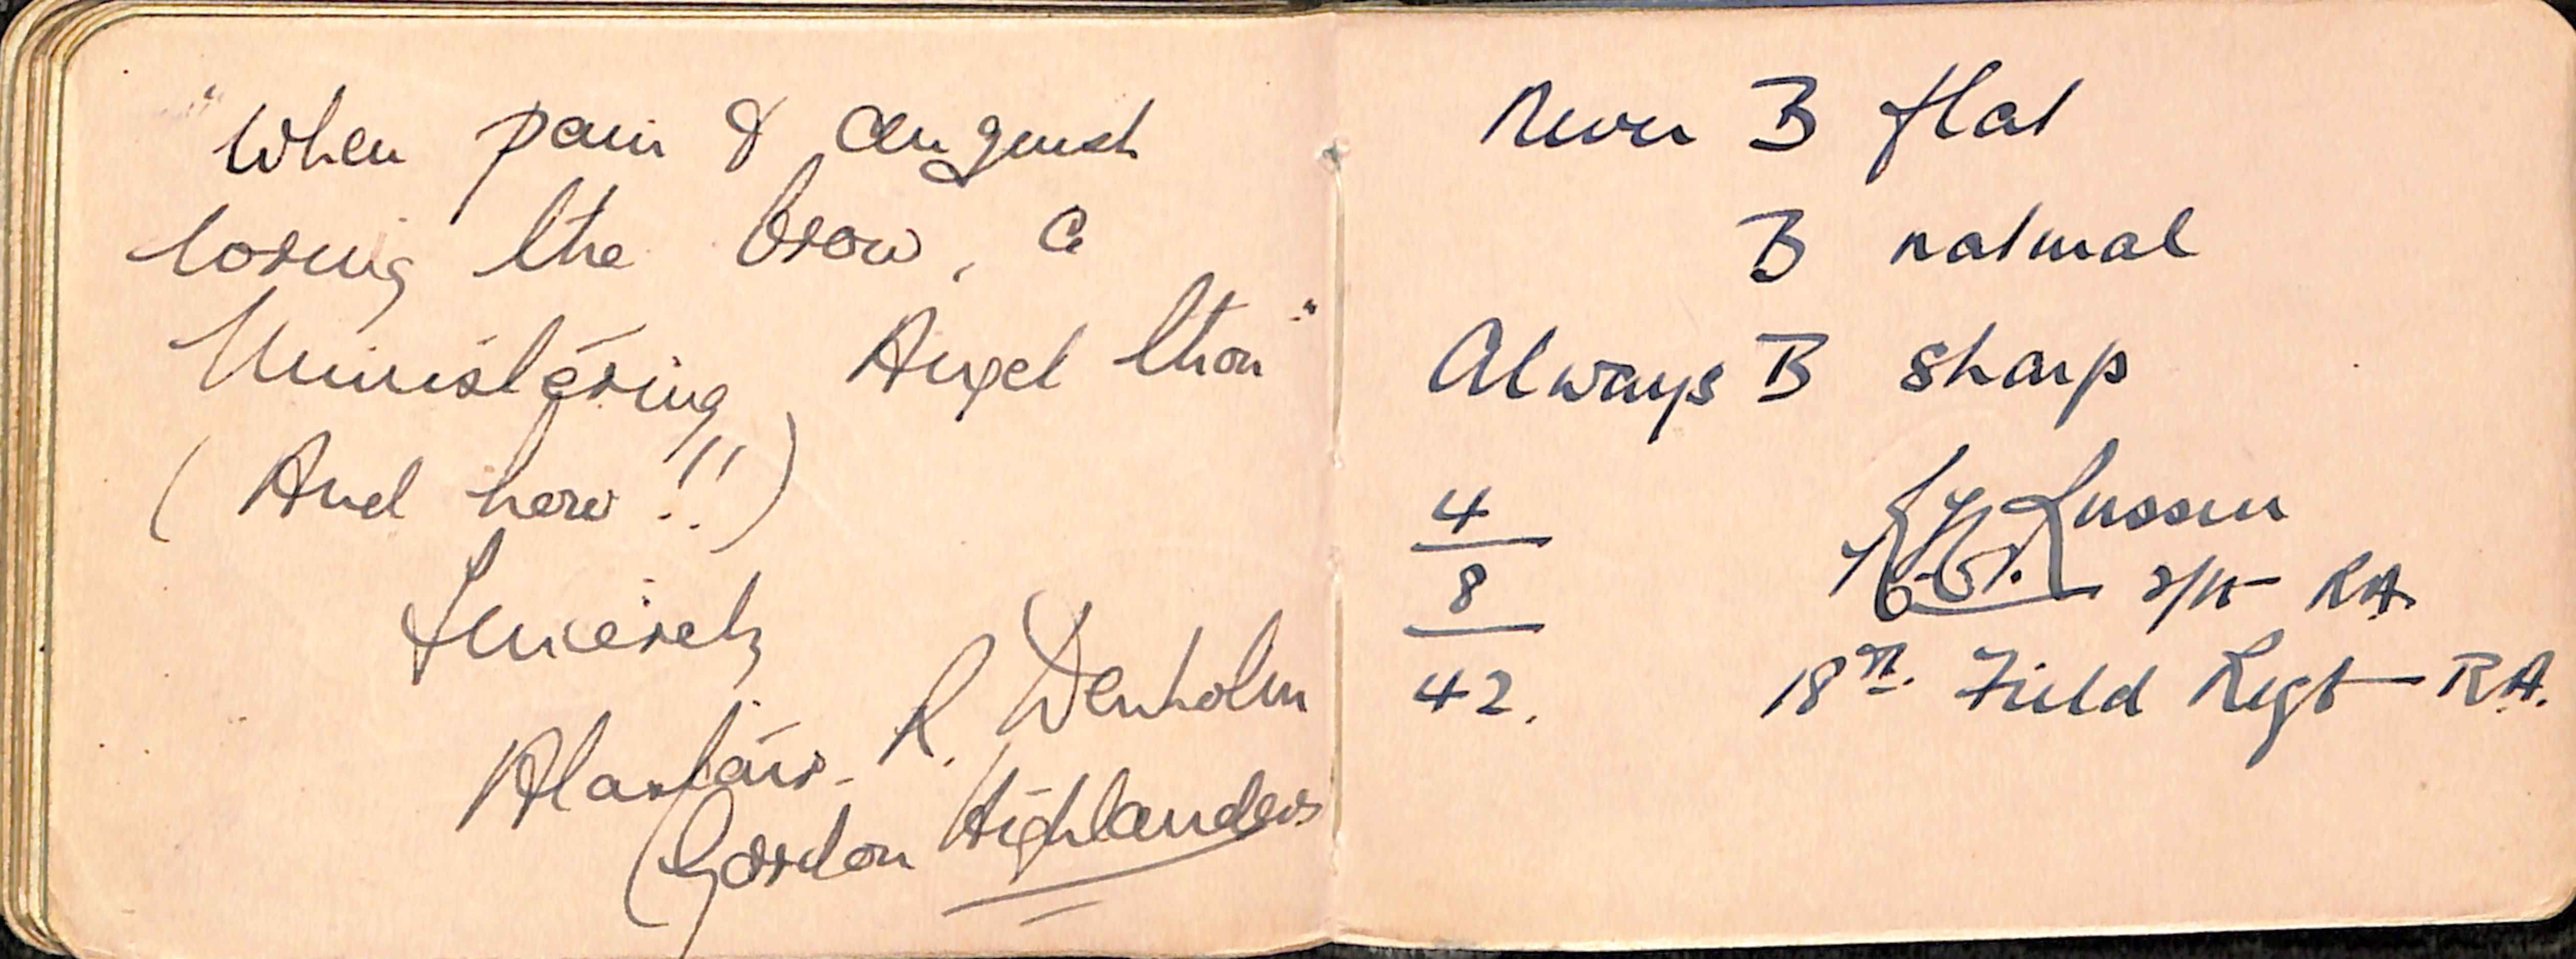 "When pain & anguish
loring the brow, a
Ministering Angel thou"
(And how!!)
Sincerely
Alastair. R. Denholm
Gordon Highlanders
Never B flat
B natural
Always B sharp
4
8
42.
2/Lt RA.
18th. Field Regt RA.